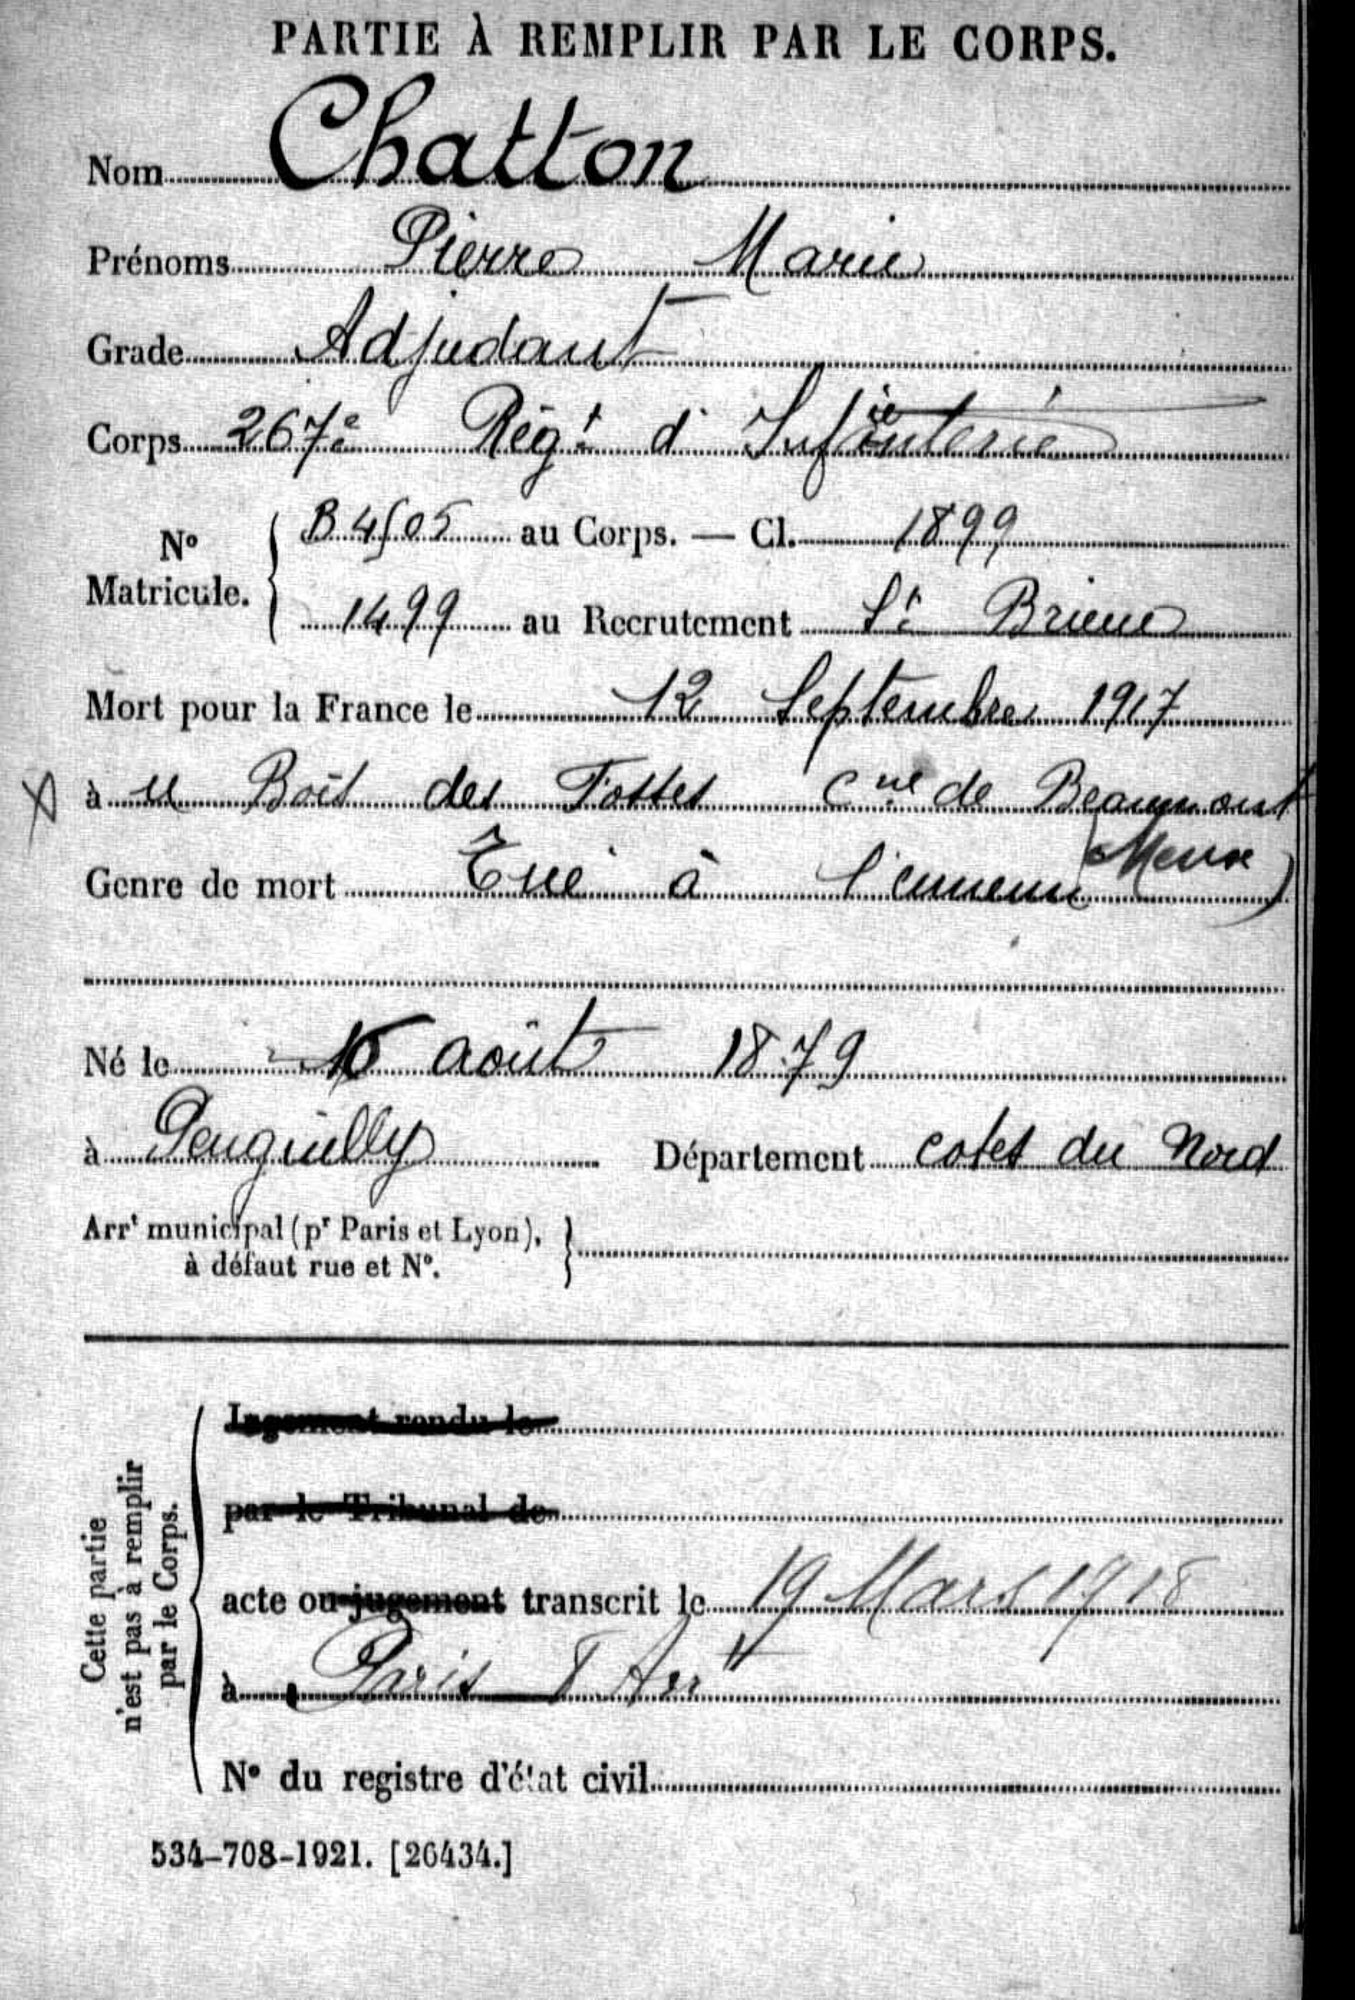 PARTIE À REMPLIR PAR LE CORPS.
Nom Chatton
Prénoms Pierre Marie
Grade Adjudant
Corps 267e Régt d' Infanterie
No Matricule. B 4505 au Corps. — Cl. 1899
1499 au Recrutement St Brieuc
Mort pour la France le 12 Septembre 1917
à u Bois des Fosses Cne de Beaumont
(Meuse)
Genre de mort Tué à l'ennemi
Né le août 1879
à Penguilly Département cotes du Nord
Arrt municipal (pr Paris et Lyon),
à défaut rue et No.
Cette partie
n'est pas à remplir
par le Corps.
Jugement rendu le
par le Tribunal de
acte ou jugement transcrit le 19 Mars 1918
à Paris Arrt
No du registre d'état civil
534-708-1921. [26434.]